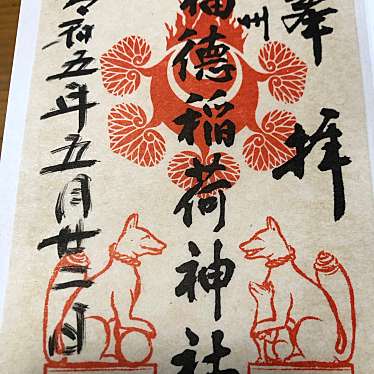 奉拝
州
福徳稲荷神社
令和五年五月廿二日